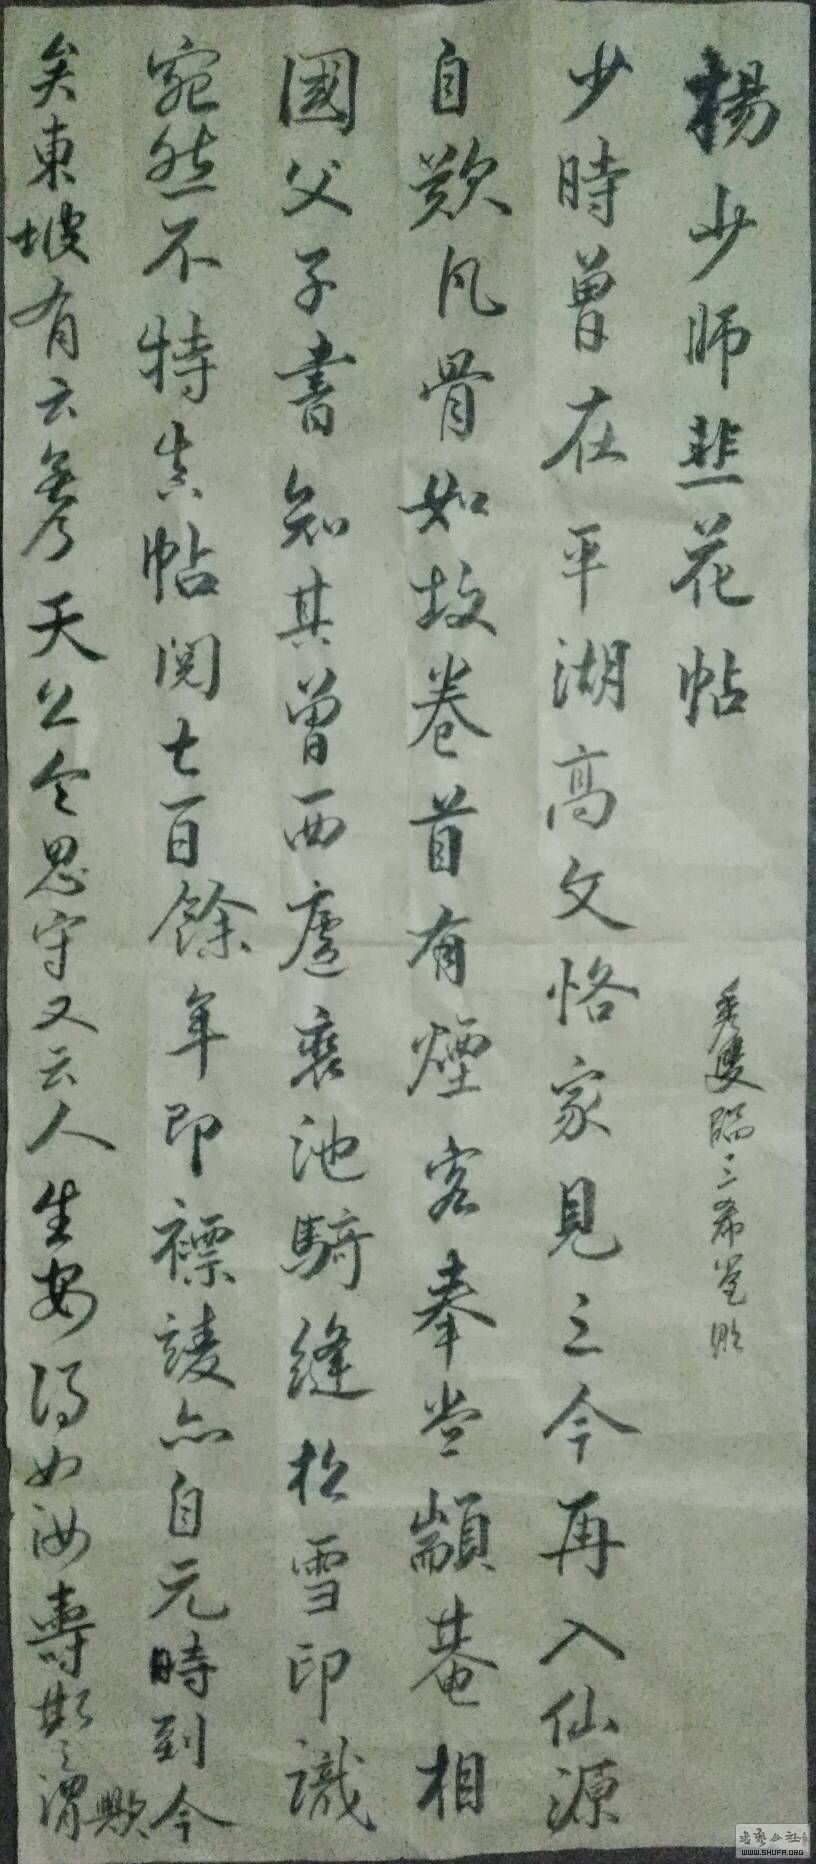 楊少師韭花帖
少時曾在平湖高文恪家見之今再入仙源
自歎凡骨如故卷首有煙客奉常顓菴相
國父子書知其曾西廬裹池騎縫松雪印識
宛然不特真帖閱七百餘年即褾綾亦自元時到今
矣東坡有云無天公令思守又云人生安得如汝壽斯之謂歟
臨三希堂
WWW.SHUFA.ORG